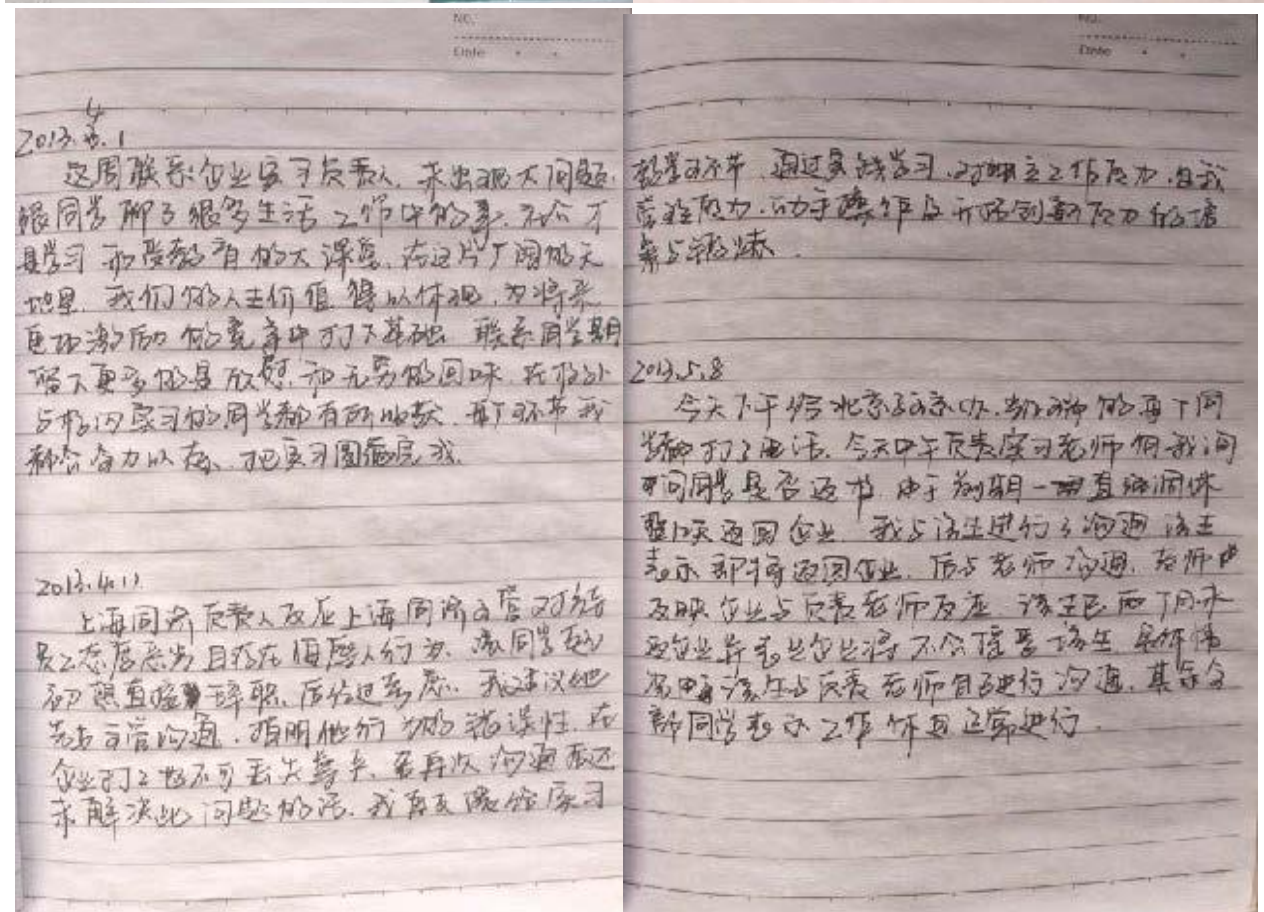 No.
Date
4
2013.4.1
这周联系企业实习负责人,未出现大问题,
跟同学聊了很多生活工作中的事,社会才
是学习和受教育的大课堂,在这片广阔的天
地里,我们的人生价值得以体现,为将来
更加激励的竞争中打下基础。联系同学期
留下更多的是欣慰,和无穷的回味,在校外
与校内实习的同学都有所收获,每个环节我
都会奋力以赴,把实习圆满完成。
2013.4.11
上海同济负责人反应上海同济主管对待
员工态度恶劣且存在侮辱人行为,该同学起
初想直接辞职,后经过考虑,我建议他
先与主管沟通,指明他行为的错误性,在
企业打工也不可丢失尊严,若再次沟通还
未解决此问题的话,我再反馈给实习
No.
Date
教学环节,通过实践学习,对独立工作能力,自我
管理能力,动手操作及开拓创新能力的培
养与锻炼。
2013.5.8
今天下午给北京的每个同
学都打了电话,今天中午负责实习老师向我询
问同学是否返校,由于前期一直调休
返回企业,我与该生进行了沟通,该生
表示即将返回企业,后与老师沟通,老师
反映企业与负责老师反应,该生已两个月未
返企业并表示企业将不会接受该生,具体情
况由该生与负责老师自己进行沟通,其余全
部同学表示工作休息正常进行.